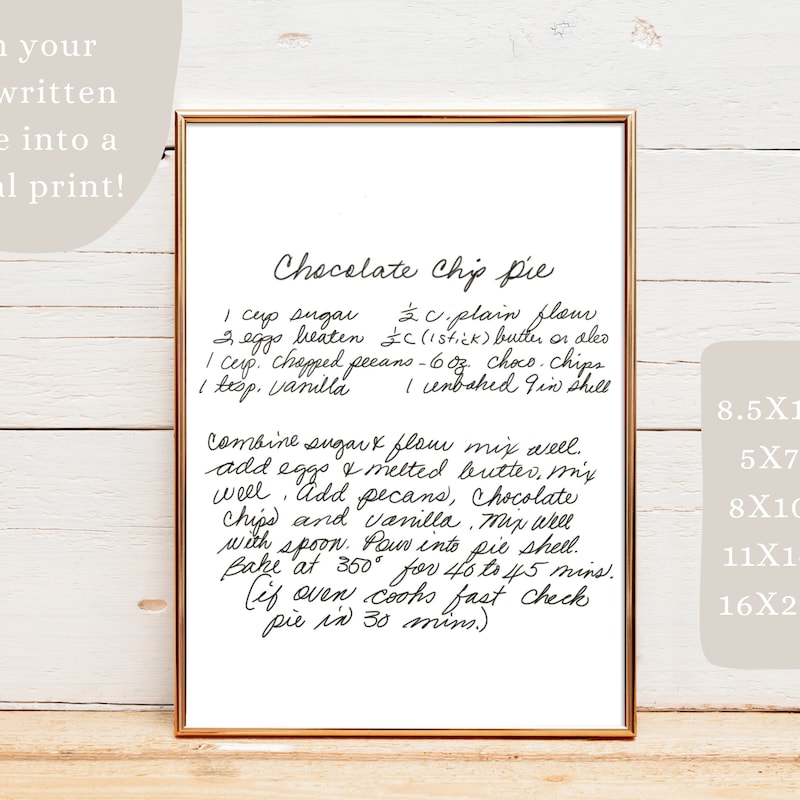 n your
written
e into a
al print!
Chocolate Chip Pie
1 cup sugar ½ c. plain flour
2 eggs beaten ½ c (1 stick) butter or oleo
1 cup. chopped pecans - 6 oz. choco. chips
1 tsp. vanilla 1 unbaked 9 in shell
Combine sugar & flour mix well.
add eggs & melted butter. mix
well. Add pecans, chocolate
chips and vanilla. Mix well
with spoon. Pour into pie shell.
Bake at 350° for 40 to 45 mins.
(if oven cooks fast check
pie in 30 mins.)
8.5X1
5X7
8X10
11X1
16X2